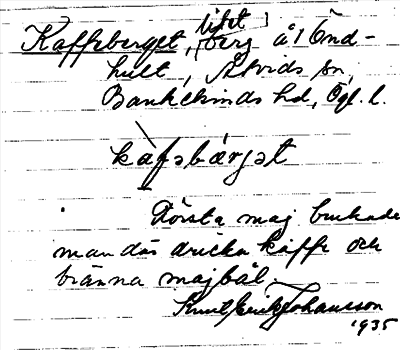 Kaffeberget, [litet] berg å 1 Önd-
hult, Åtvids sn,
Bankekinds hd, Ögl. l.
kafəbærjət
Första maj brukade
man där dricka kaffe och
bränna majbål
Knut Erik Johansson
1935